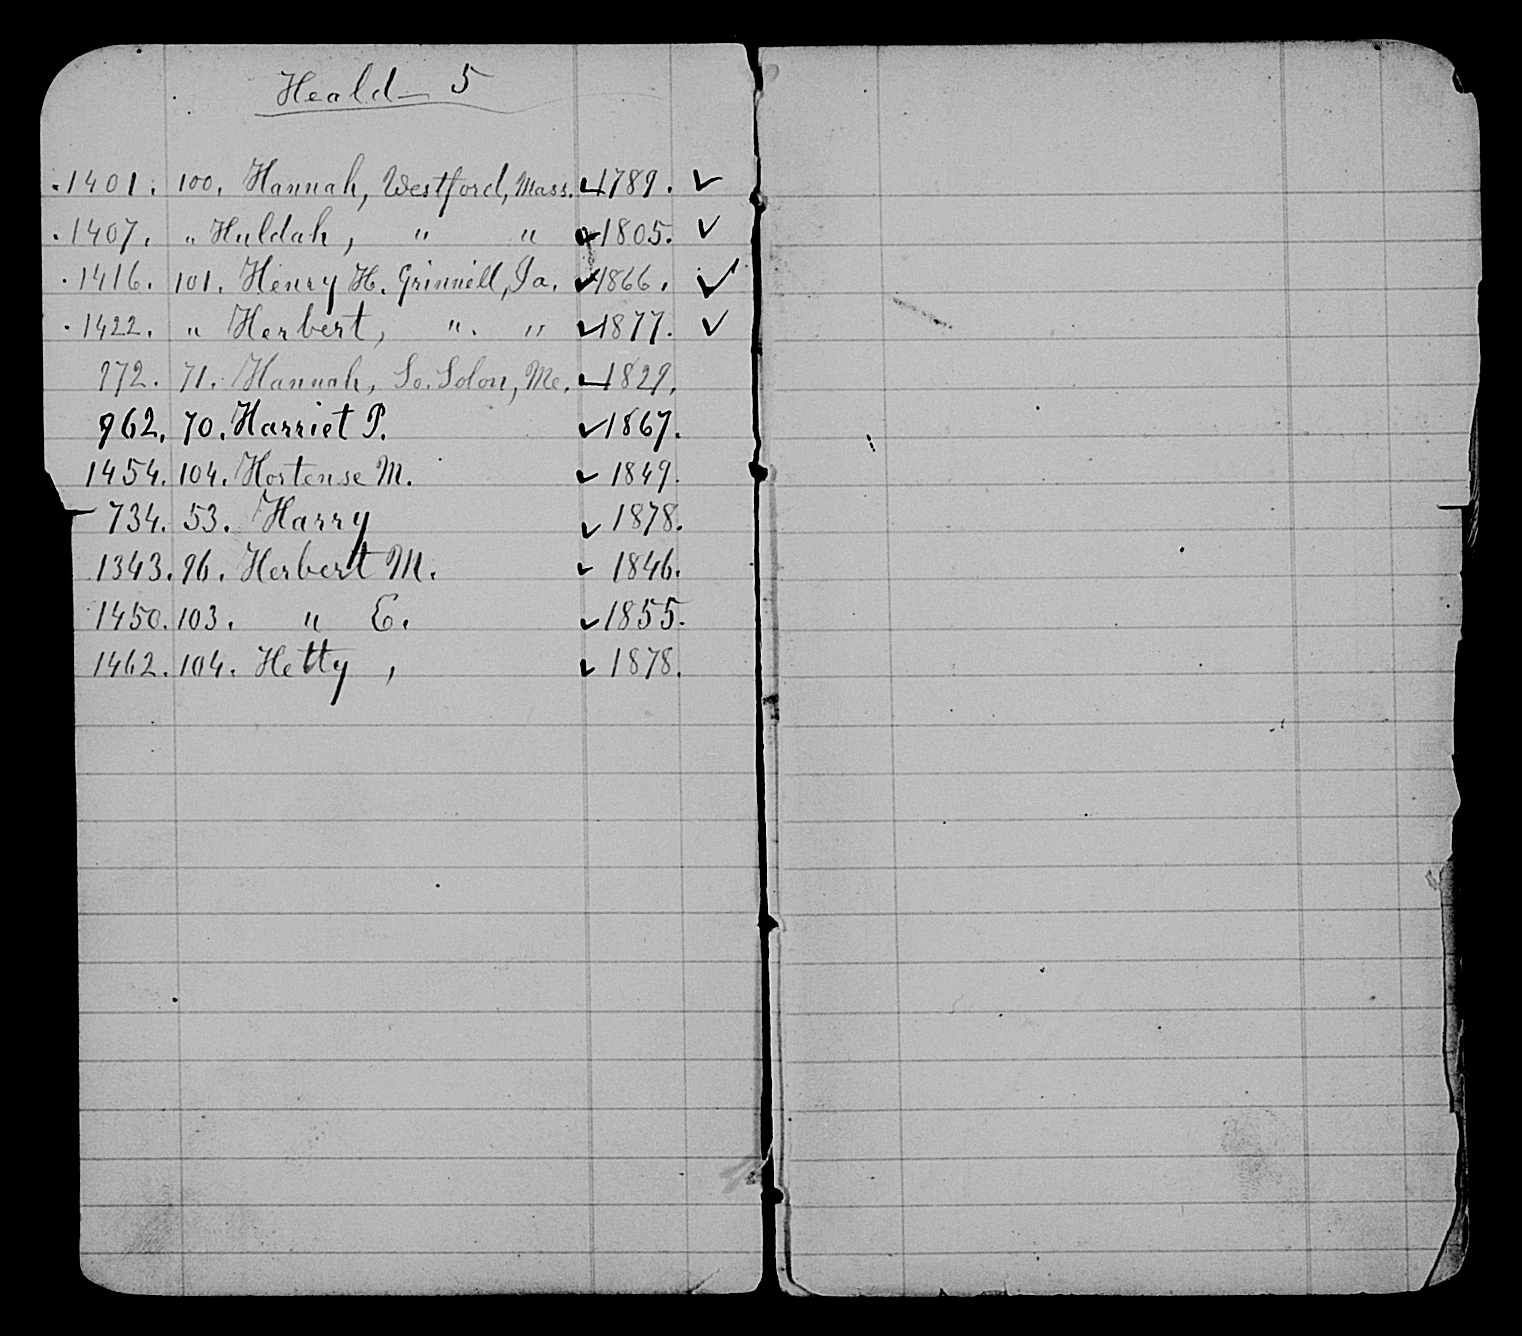 Heald - 5
.1401. 100. Hannah, Westford, Mass. ✓1789. ✓
.1407. " Huldah, " " ✓1805. ✓
.1416. 101. Henry H. Grinnell, Ia. ✓1866. ✓
.1422. " Herbert, ". " ✓1877. ✓
972. 71. Hannah, So. Solon, Me. ✓1829.
962. 70. Harriet P. ✓1867.
1454. 104. Hortense M. ✓ 1849.
734. 53. Harry ✓ 1878.
1343. 96. Herbert M. ✓ 1846.
1450. 103. " E. ✓1855.
1462. 104. Hetty , ✓ 1878.